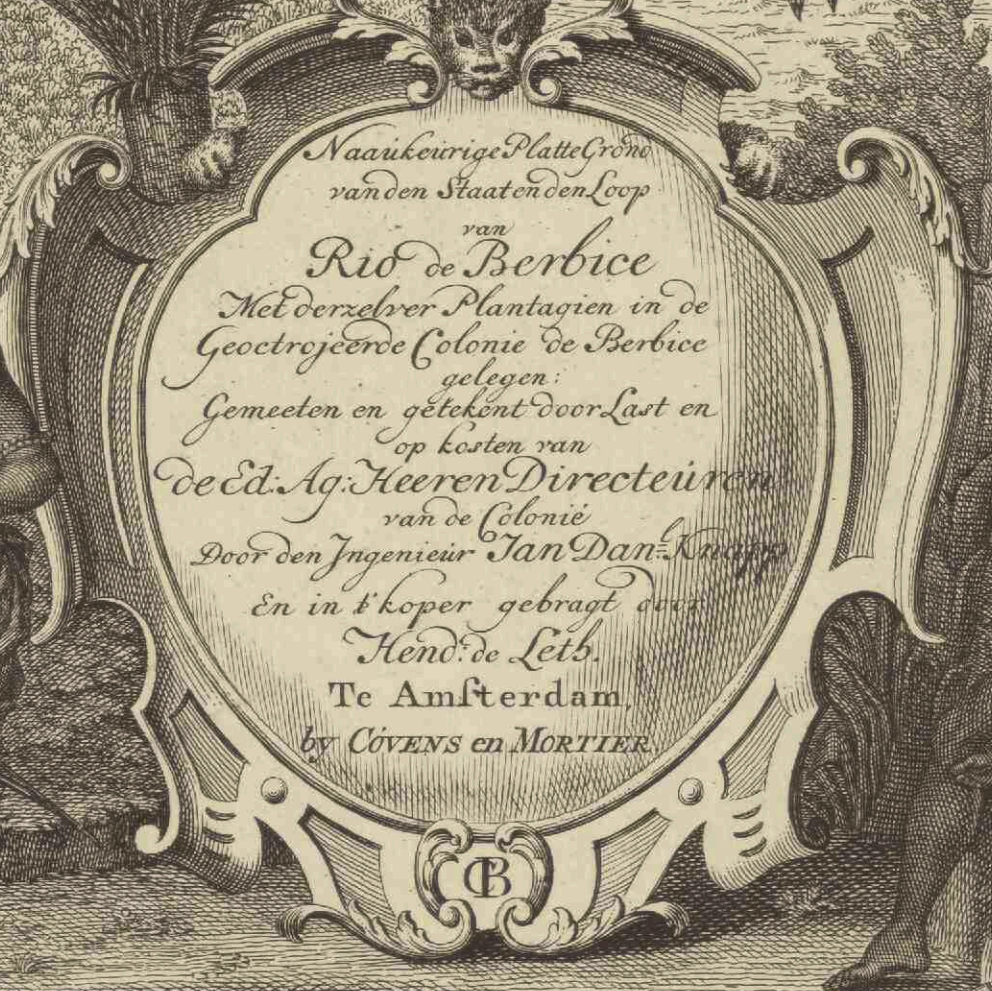 Naaukeurige Platte Grond
van den Staat en den Loop
van
Rio de Berbice
Met derzelver Plantagien in de
Geoctrojeerde Colonie de Berbice
gelegen:
Gemeeten en getekent door Last en
op kosten van
de Ed: Ag: Heeren Directeúren
van de Colonie
Door den Ingenieúr Jan Dan.l Knapp
En in 't koper gebragt door
Hend.k de Leth.
Te Amſterdam,
by CÓVENS en MORTIER.
CB